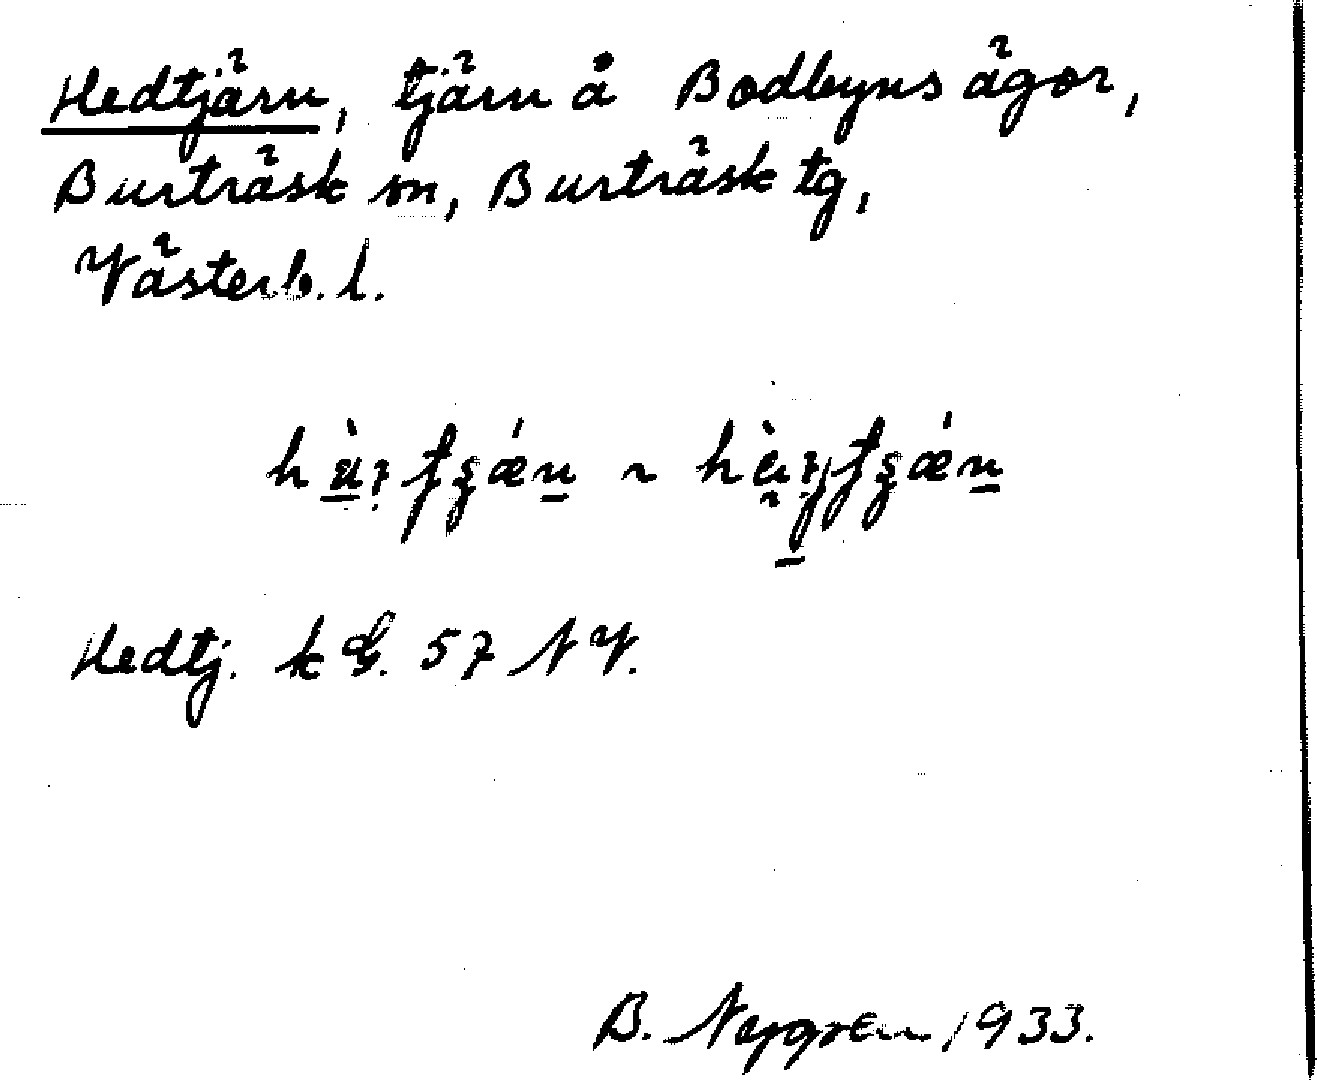 Hedtjärn, tjärn å Bodbyns ägor,
Burträsk sn, Burträsk tg,
Västerb. l.
Hedtj. k G. 57 NV.
B. Nygren 1933.